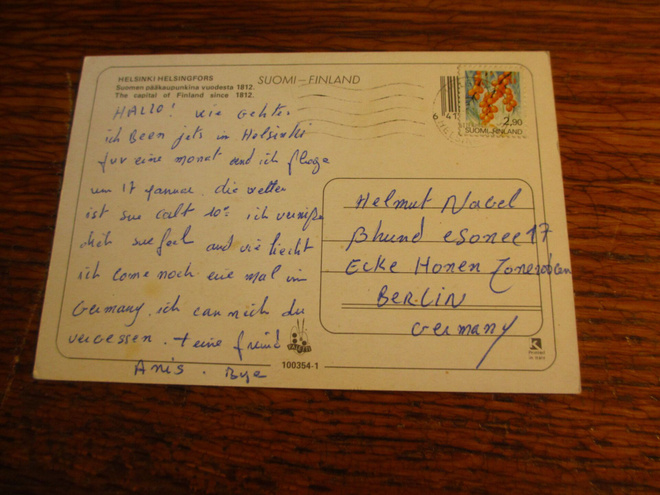 HELSINKI HELSINGFORS
Suomen pääkaupunkina vuodesta 1812.
The capital of Finland since 1812.
SUOMI–FINLAND
2,90
SUOMI-FINLAND
HALLO! wie gehts
ich Been jets in Helsinki
fur eine monat und ich
um 17 Januar. die wetter
ist sue calt 10° ich
dich sue und vie
ich come noch eine mal in
Germany. ich can nich du
vergessen.
Anis. Bye
Helmut Nabel
17
Ecke Honen
BERLIN
Germany
100354-1
K
Printed
in Italy